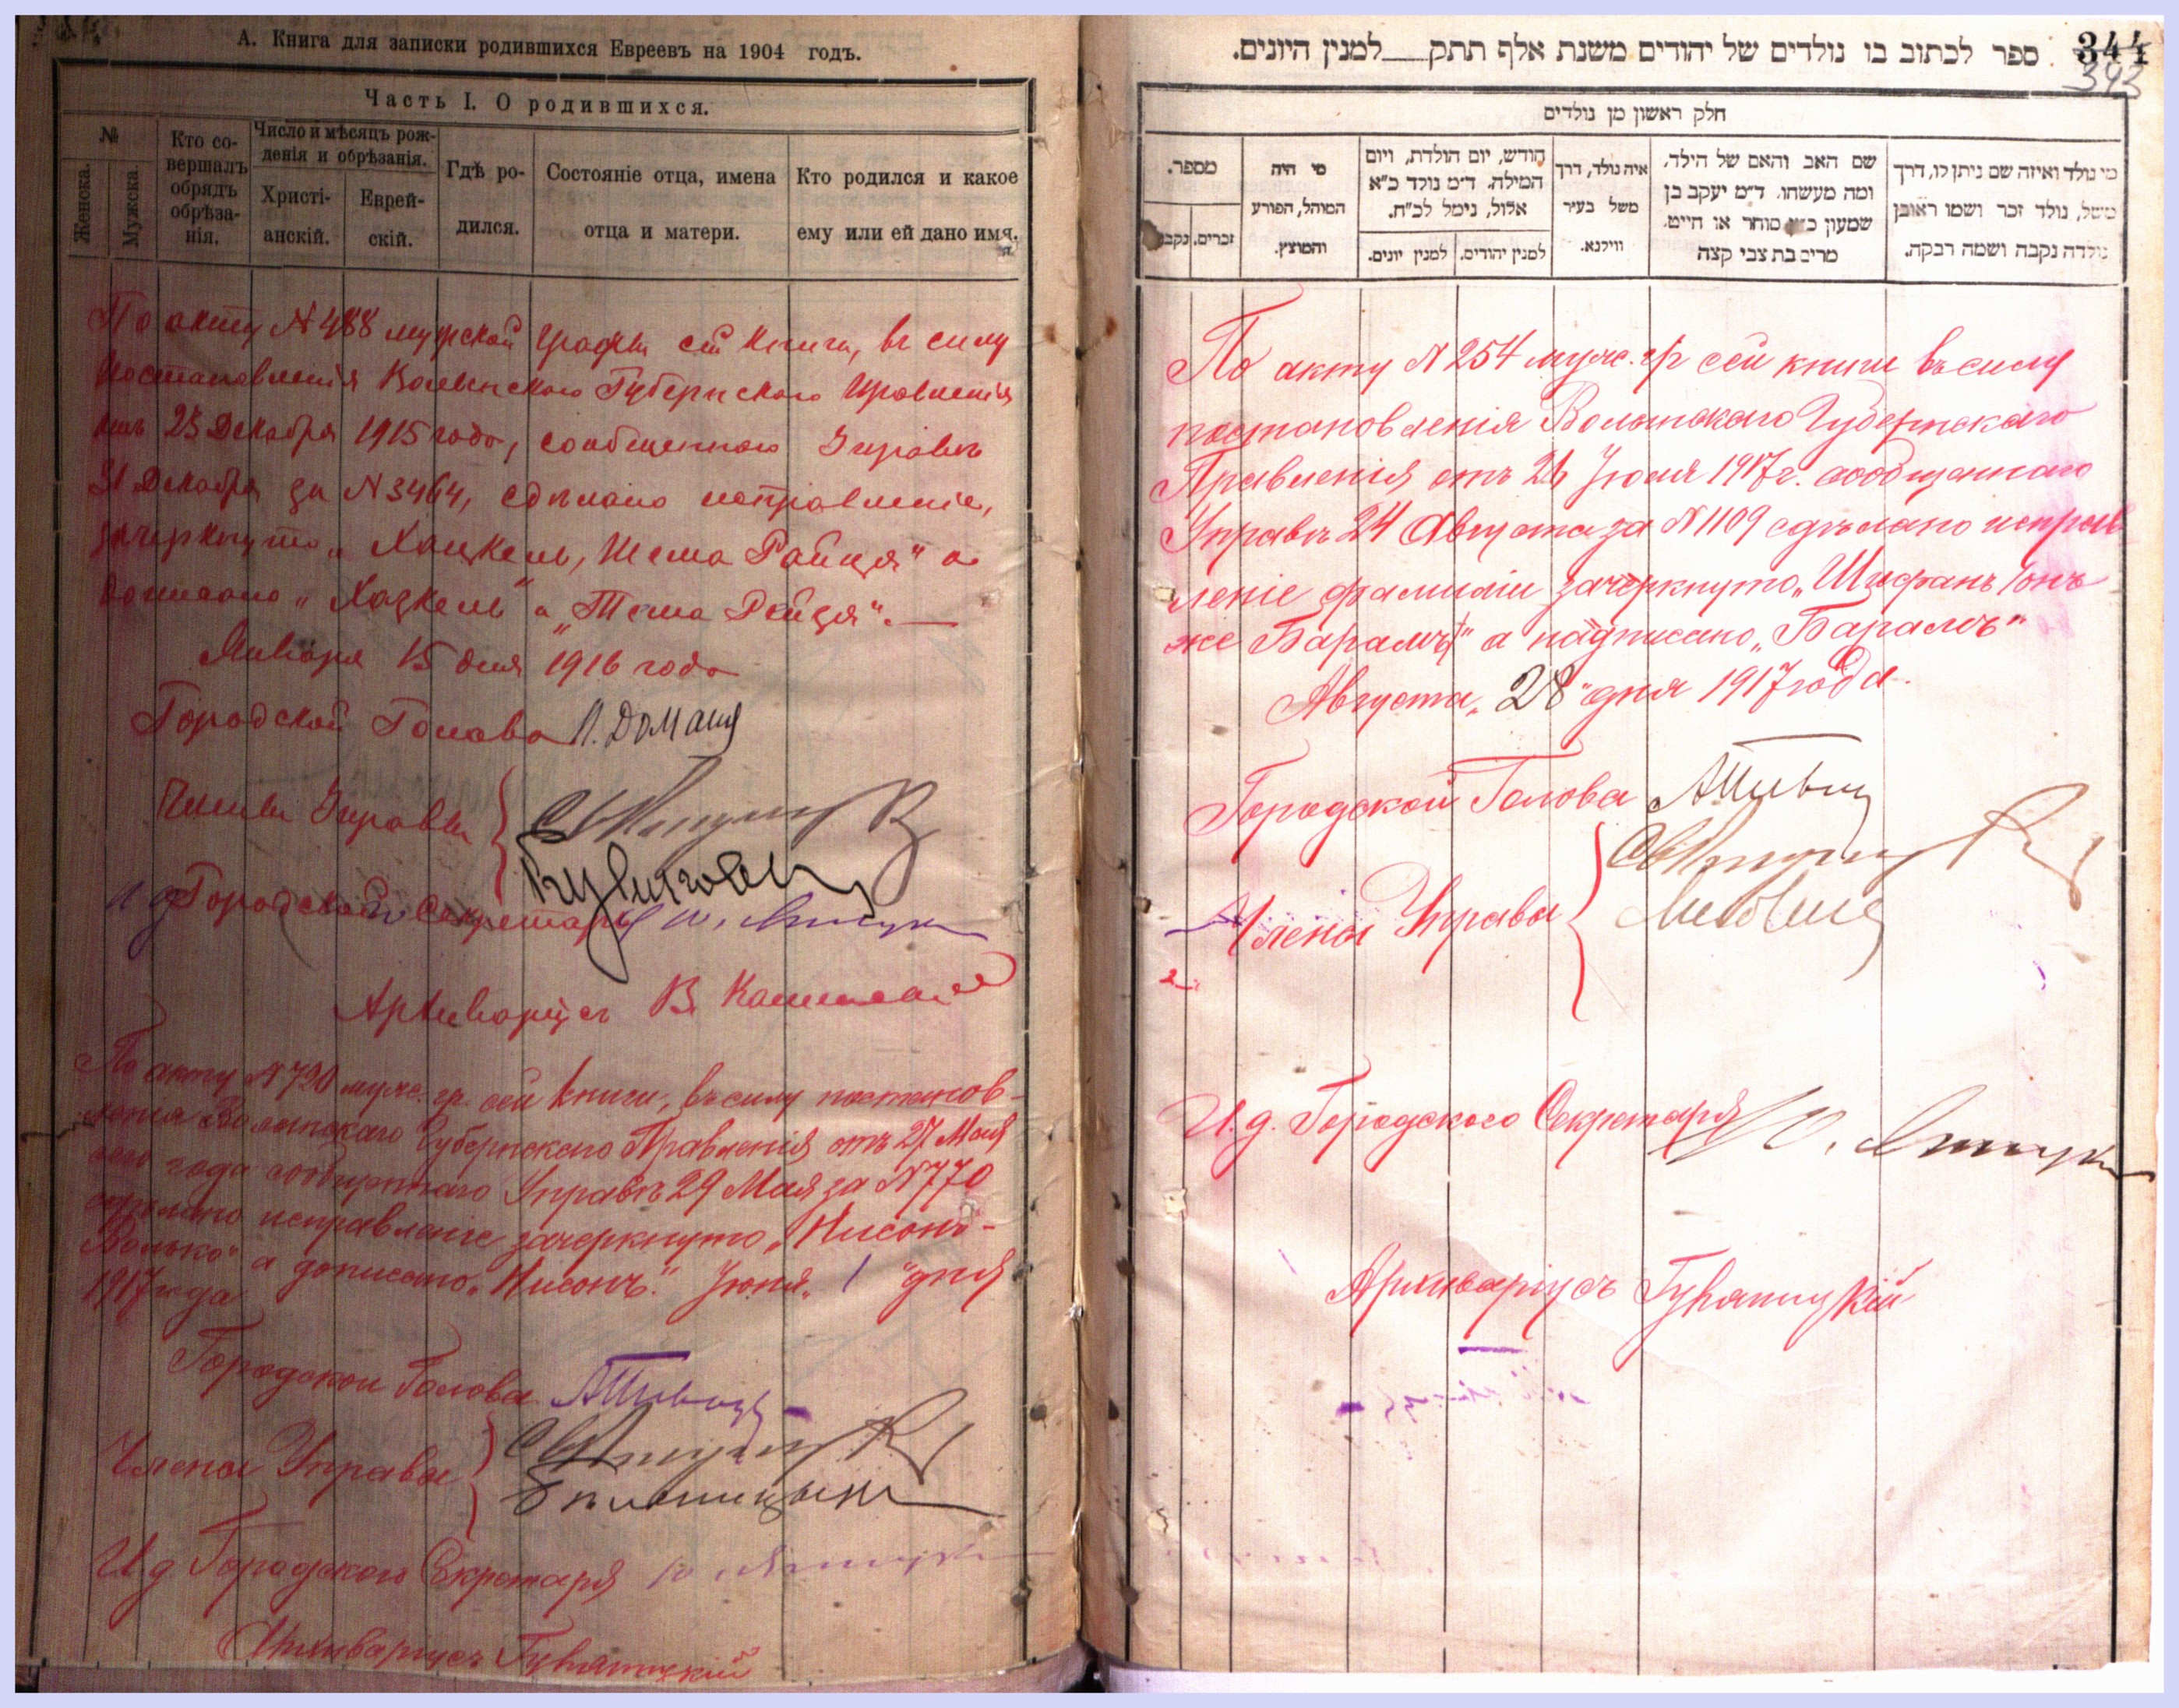 А. Книга для записки родившихся Евреевъ на 1904 годъ.
Часть I. О родившихся.
№
Женска.
Мужска.
Кто со-
вершалъ
обрядъ
обрѣза-
нія.
Число и мѣсяцъ рож-
денія и обрѣзанія.
Христі-
анскій.
Еврей-
скій.
Гдѣ ро-
дился.
Состояніе отца, имена
отца и матери.
Кто родился и какое
ему или ей дано имя.
По акту № 488 мужской графы сей книги, въ силу
постановленія Волынскаго Губернскаго Правленія
отъ 23 Декабря 1915 года, сообщеннаго Управѣ
31 Декабря за № 3464, сдѣлано исправленіе,
зачеркнуто „Хацкель, Шема Райця" а
дописано „Хаскель" и „Тема Рейзя".—
Января 15 дня 1916 года
Городской Голова
Члены Управы
И д Городского Секретаря
Архиваріусъ В.
По акту № 720 муж. гр. сей книги, въ силу постанов-
ленія Волынскаго Губернскаго Правленія отъ 27 Мая
сего года сообщеннаго Управѣ 29 Мая за № 770
сдѣлано исправленіе зачеркнуто „Нисонъ-
Волько" а дописано „Нисонъ." Іюня „1" дня
1917 года
Городской Голова
Члены Управы
И.д Городского Секретаря
Архиваріусъ
344
343
ספר לכתוב בו נולדים של יהודים משנת אלף תתק__למנין היונים.
חלק ראשון מן נולדים
מספר.
זכרים.
נקבות
מי היה
המוהל, הפורע
והמוצץ.
חודש, יום הולדת, ויום
המילה. ד״מ נולד כ״א
אלול, נימל לכ״ח.
למנין יהודים.
למנין יונים.
איה נולד, דרך
משל בעיר
ווילנא.
שם האב והאם של הילד,
ומה מעשהו. ד״מ יעקב בן
שמעון סוחר או חייט.
מרים בת צבי קצה
מי נולד ואיזה שם ניתן לו, דרך
משל, נולד זכר ושמו ראובן
נולדה נקבה ושמה רבקה.
По акту № 254 муж. гр сей книги въ силу
постановленія Волынскаго Губернскаго
Правленія отъ 26 Іюля 1917 г. сообщеннаго
Управѣ 24 Августа за № 1109 сдѣлано исправ-
леніе фамиліи зачеркнуто „Шифанъ онъ
же Баралъ" а надписано „Баралъ"
Августа „28" дня 1917 года.
Городской Голова
Члены Управы
И.д. Городского Секретаря
Архиваріусъ